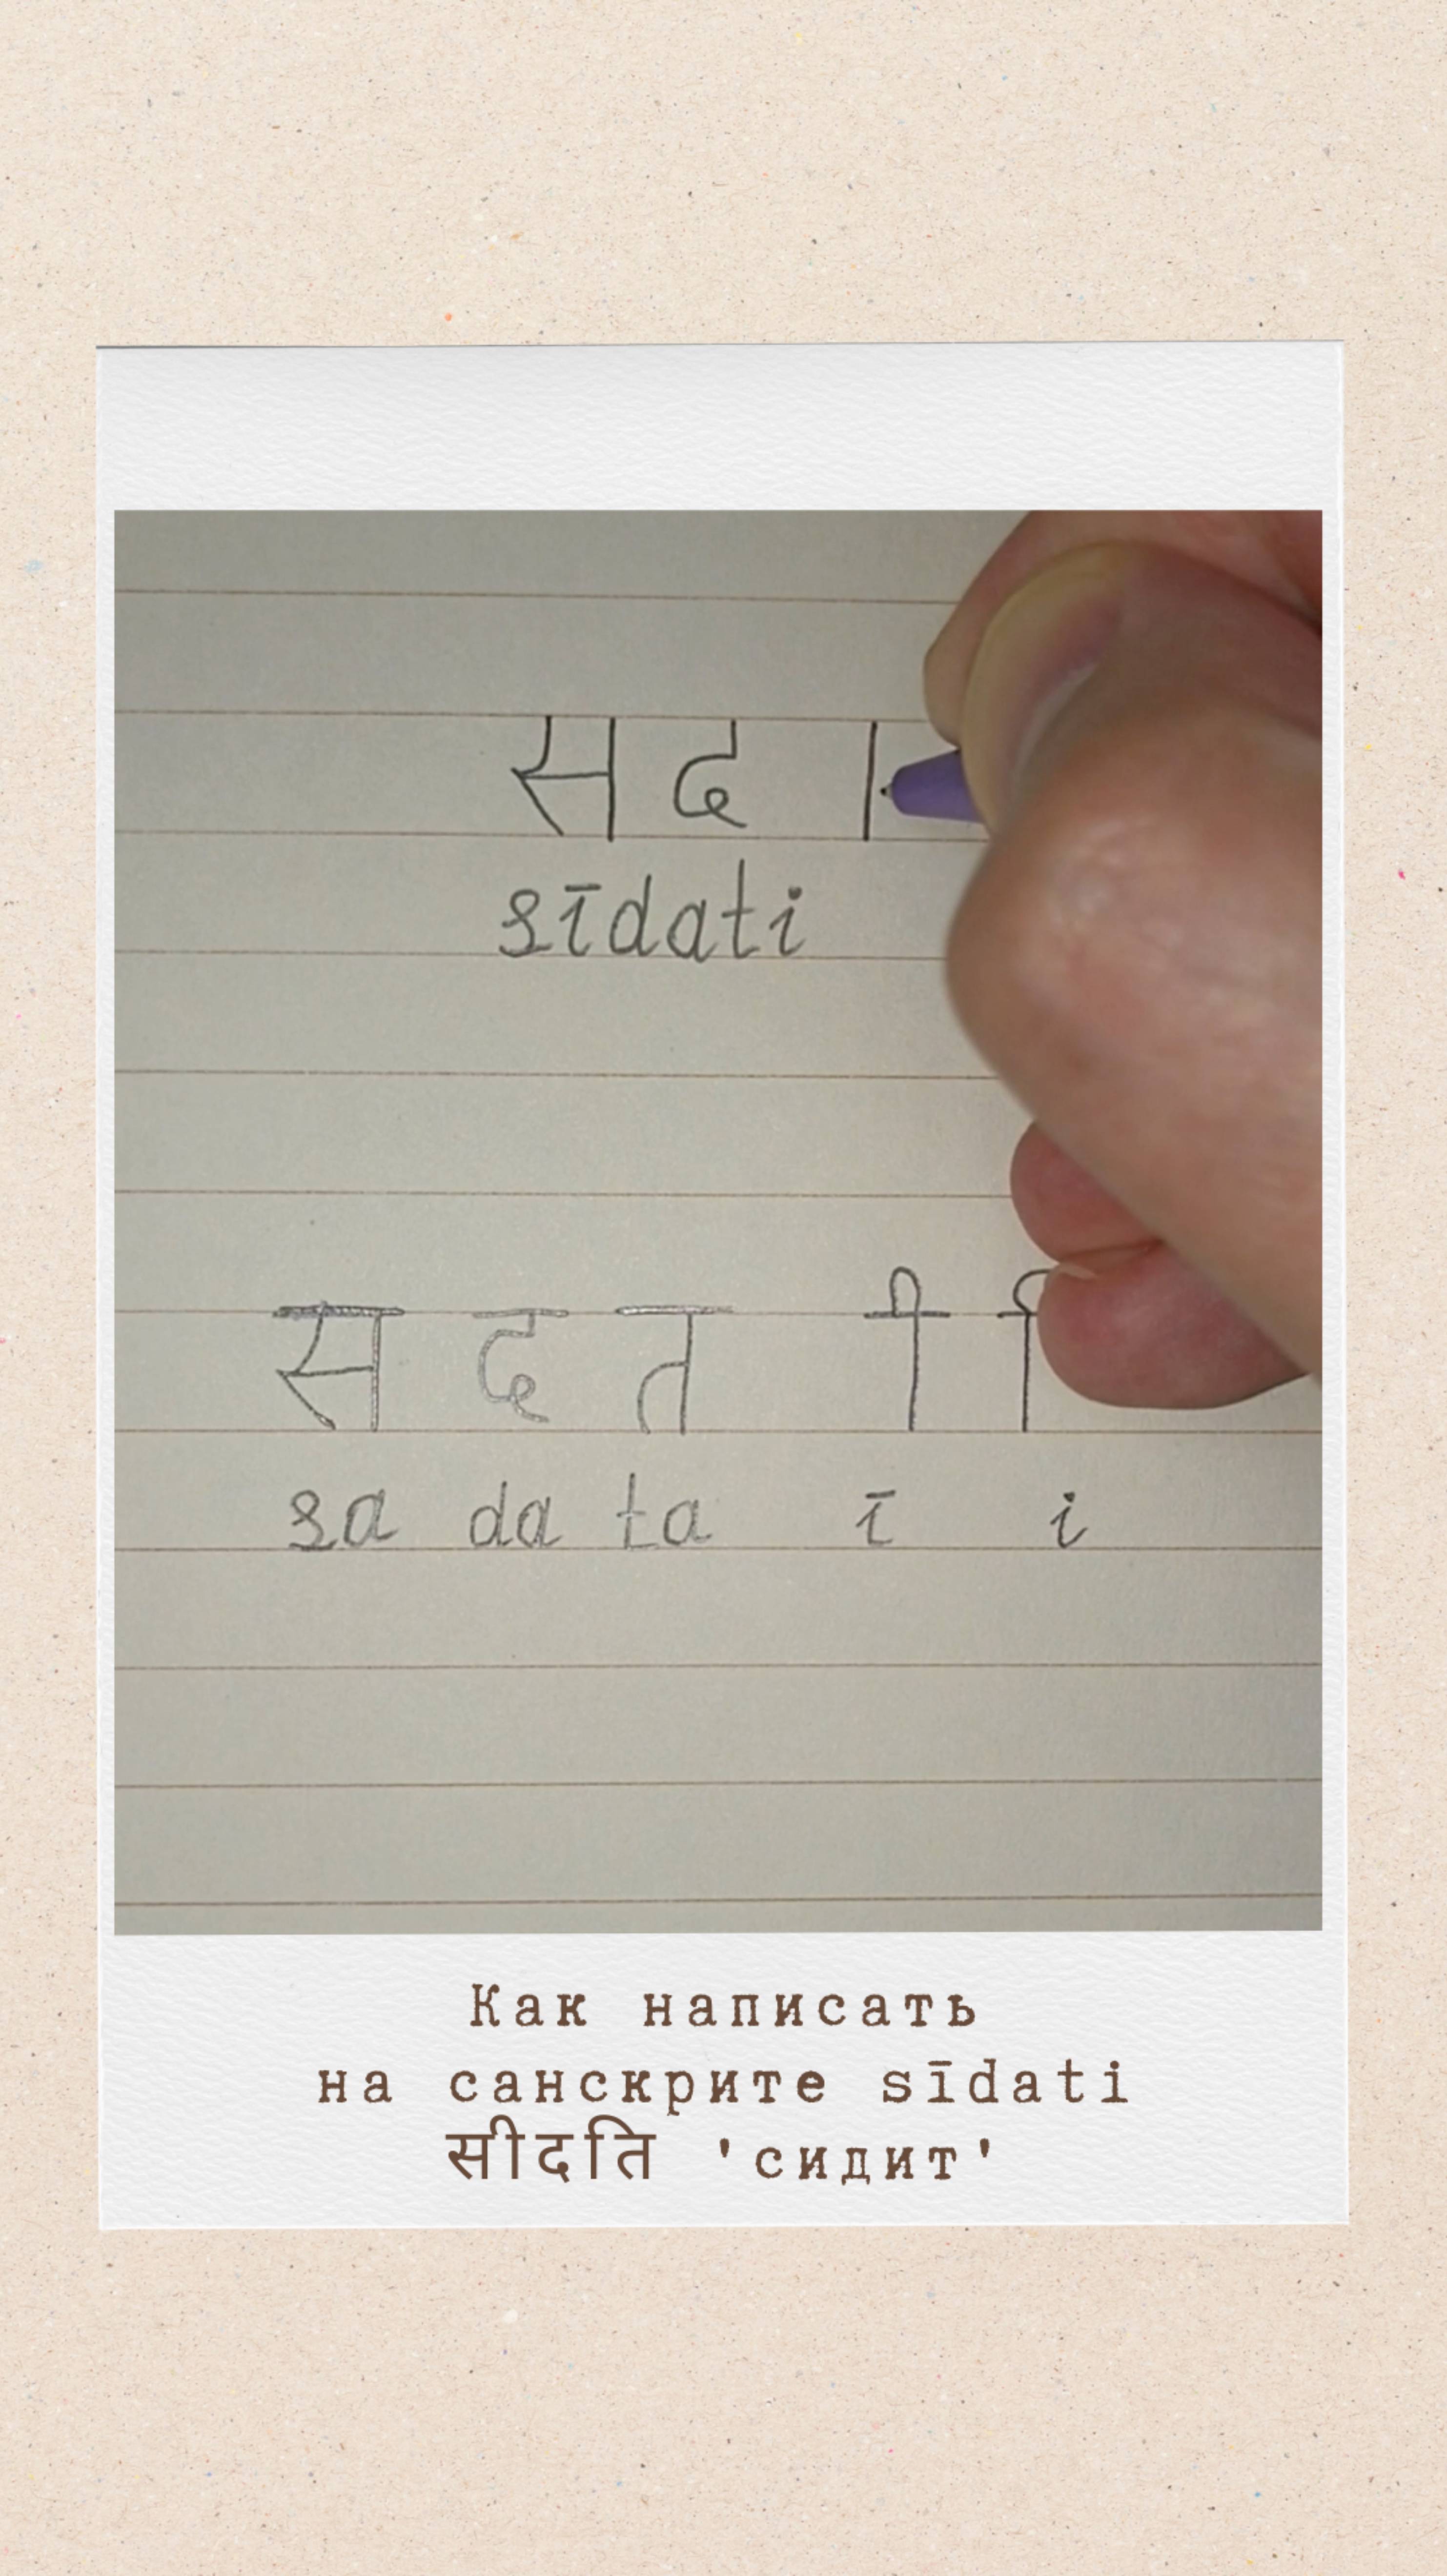 स द ा
sīdati
स द त ी ि
sa da ta ī i
Как написать
на санскрите sīdati
सीदति 'сидит'